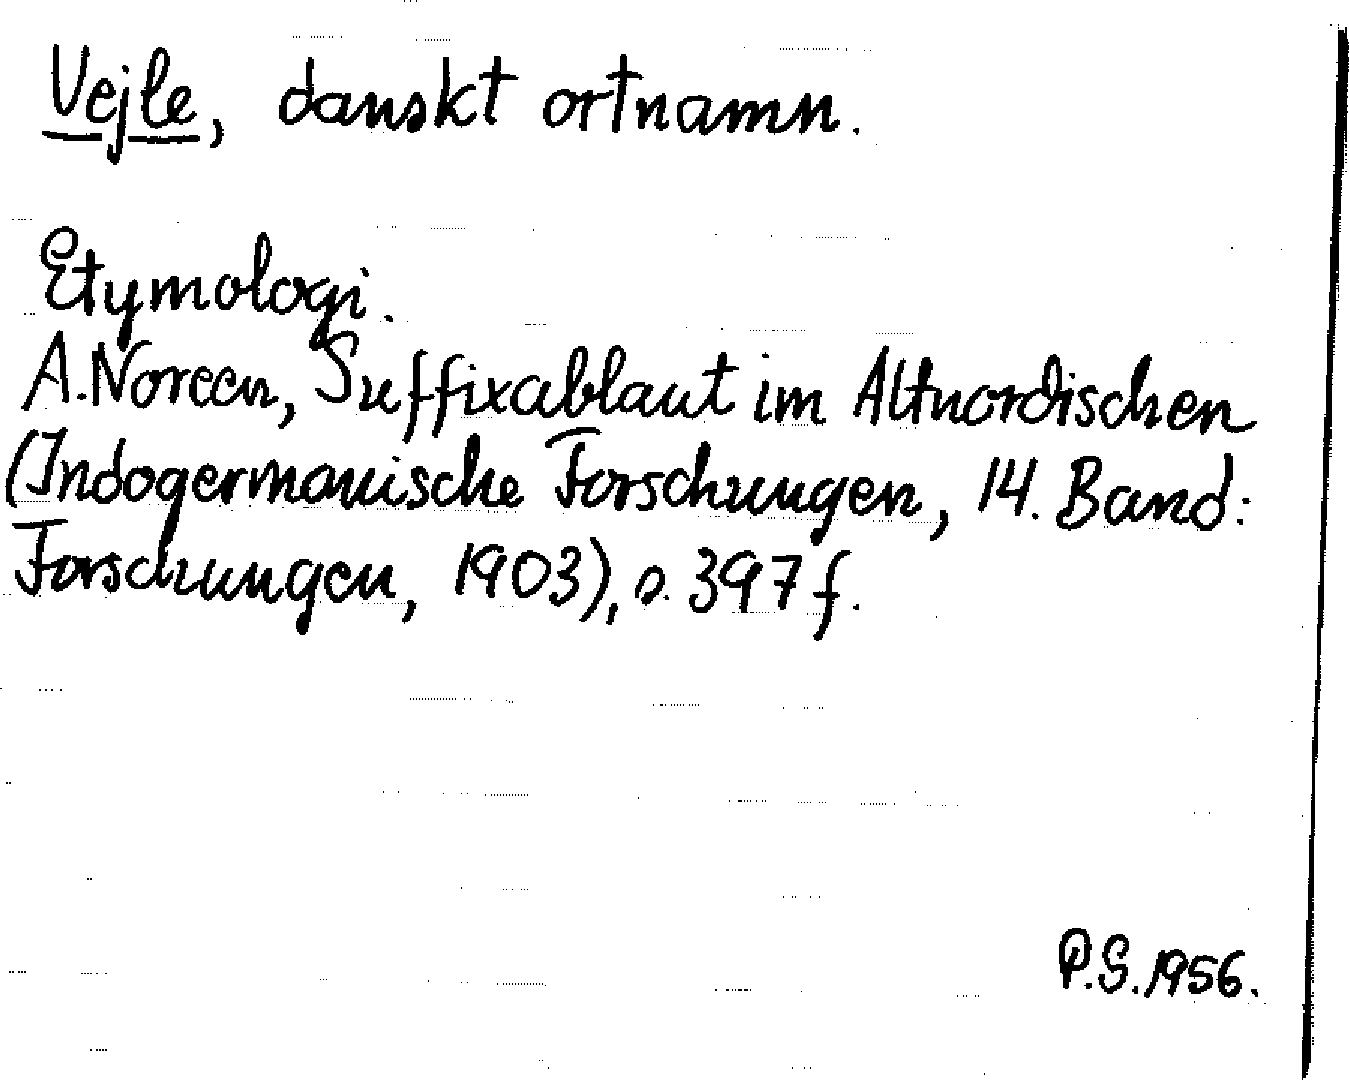 Vejle, danskt ortnamn.
Etymologi.
A. Noreen, Suffixablaut im Altnordischen
(Indogermanische Forschungen, 14. Band:
Forschungen, 1903), s. 397 f.
P.S. 1956.